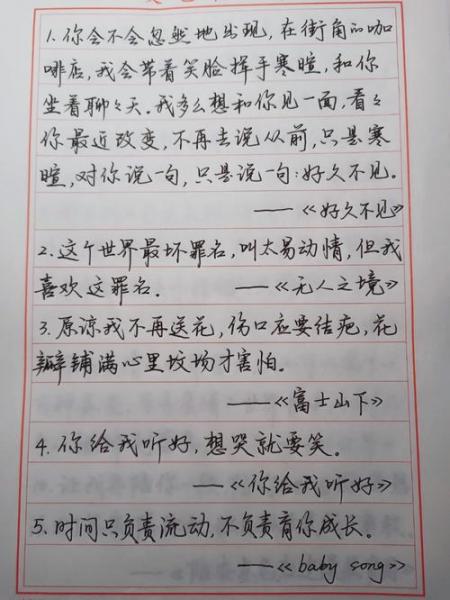 1.你会不会忽然地出现,在街角的咖
啡店,我会带着笑脸挥手寒暄,和你
坐着聊々天。我多么想和你见一面,看々
你最近改变,不再去说从前,只是寒
暄,对你说一句,只是说一句:好久不见。
——《好久不见》
2.这个世界最坏罪名,叫太易动情,但我
喜欢这罪名。 ——《无人之境》
3.原谅我不再送花,伤口应要结疤,花
瓣铺满心里坟场才害怕。
——《富士山下》
4.你给我听好,想哭就要笑。
——《你给我听好》
5.时间只负责流动,不负责育你成长。
——《baby song》